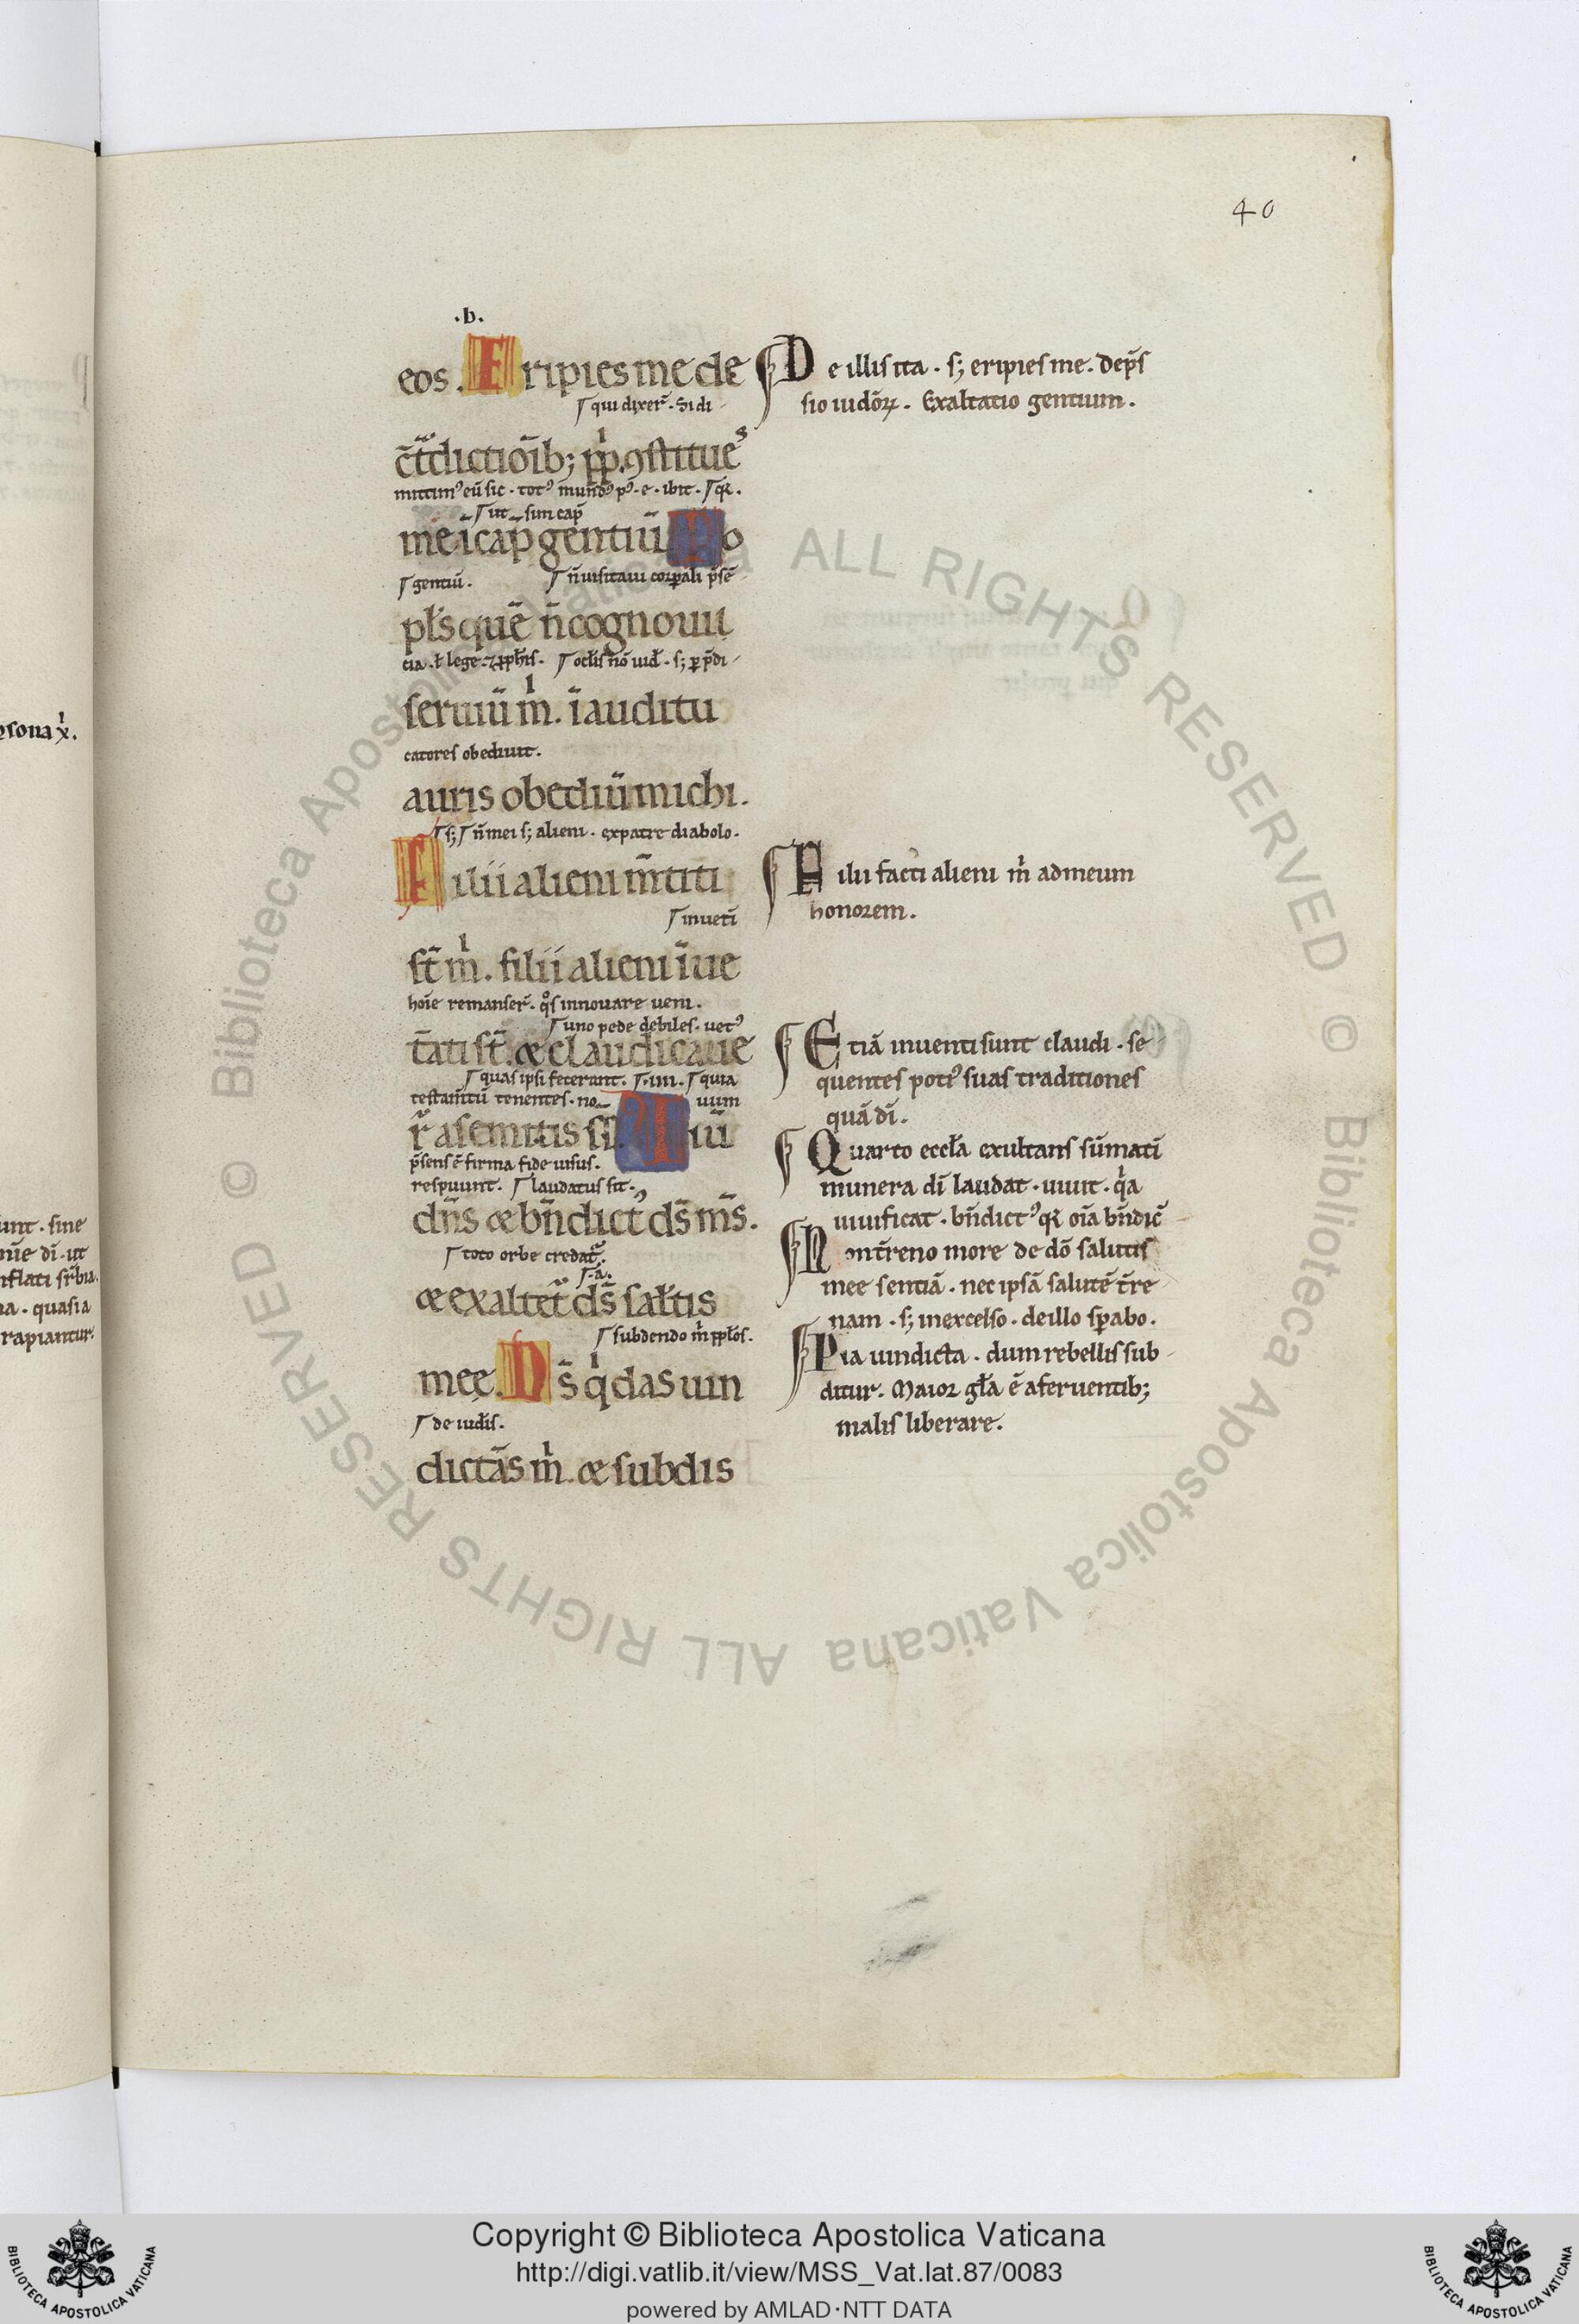 40
.b.
eos. Eripies me de
qui dixer̄. Si di
c̄t̃dictiōib; pp̄. ꝯstitueˢ
mittimꝰ eū sic. totꝰ mund̄ꝰ pꝰ. e. ibit.
ut sim cap̄
me ī cap̄ gentiū Po
gentiū. n̄ uisitaui corꝑali p̄sē
pl̄s quē n̄ cognoui
cia. ł lege. ꝓph̄is. ocl̄is nō uid̄. s; ꝑ p̄di
seruiū m̄. ī auditu
catores obediuit.
auris obediū michi.
s; n̄ mei s; alieni. ex patre diabolo.
Filii alieni m̄titi
inueti̅
st̄ m̄. filii alieni īue
hoīe remanser̄. qͦs innouare ueni.
uno pede debiles. uetꝰ
t̄ati st̄. & claudicaue
quas ipsi fecerant. .iiii. quia
testam̄tū tenentes. no uum
r̃ a semitis
p̄sens ē firma fide uisus. Uiū
respuunt. laudatus sit.
dn̄s & bn̄dictꝰ ds̄ ms̄.
toto orbe credat̃.
.a.
& exaltet̃ ds̄ sal̄tis
subdendo m̄ ppl̄os.
meę. Ds̄ q̇ das uin
de iud̄is.
dictās m̄. & subdis
De illis ita. s; eripies me. dep̄s
sio iudōꝝ. Exaltatio gentium.
Filii facti alieni m̄ ad meum
honorem.
Etiā inuenti sunt claudi. se
quentes potiꝰ suas traditiones
quā dī.
Quarto eccl̄a exultans sūmati̅
munera dī laudat. uiuit. q̇a
uiuificat. bn̄dictꝰ qꝛ oīa bn̄dic̄
Non t̄reno more de dō salutis
mee sentiā. nec ipsā salutē t̄re
nam. s; in excelso. de illo sꝑabo.
Pia uindicta. dum rebellis sub
ditur. Maior gl̄a ē a feruentib;
malis liberare.
sona x̄.
unt. sine
dī. ut
nflati
na. quasi a
rapiantur.
Copyright © Biblioteca Apostolica Vaticana
http://digi.vatlib.it/view/MSS_Vat.lat.87/0083
powered by AMLAD·NTT DATA
BIBLIOTECA APOSTOLICA VATICANA
BIBLIOTECA APOSTOLICA VATICANA
© Biblioteca Apostolica Vaticana ALL RIGHTS RESERVED
© Biblioteca Apostolica Vaticana ALL RIGHTS RESERVED